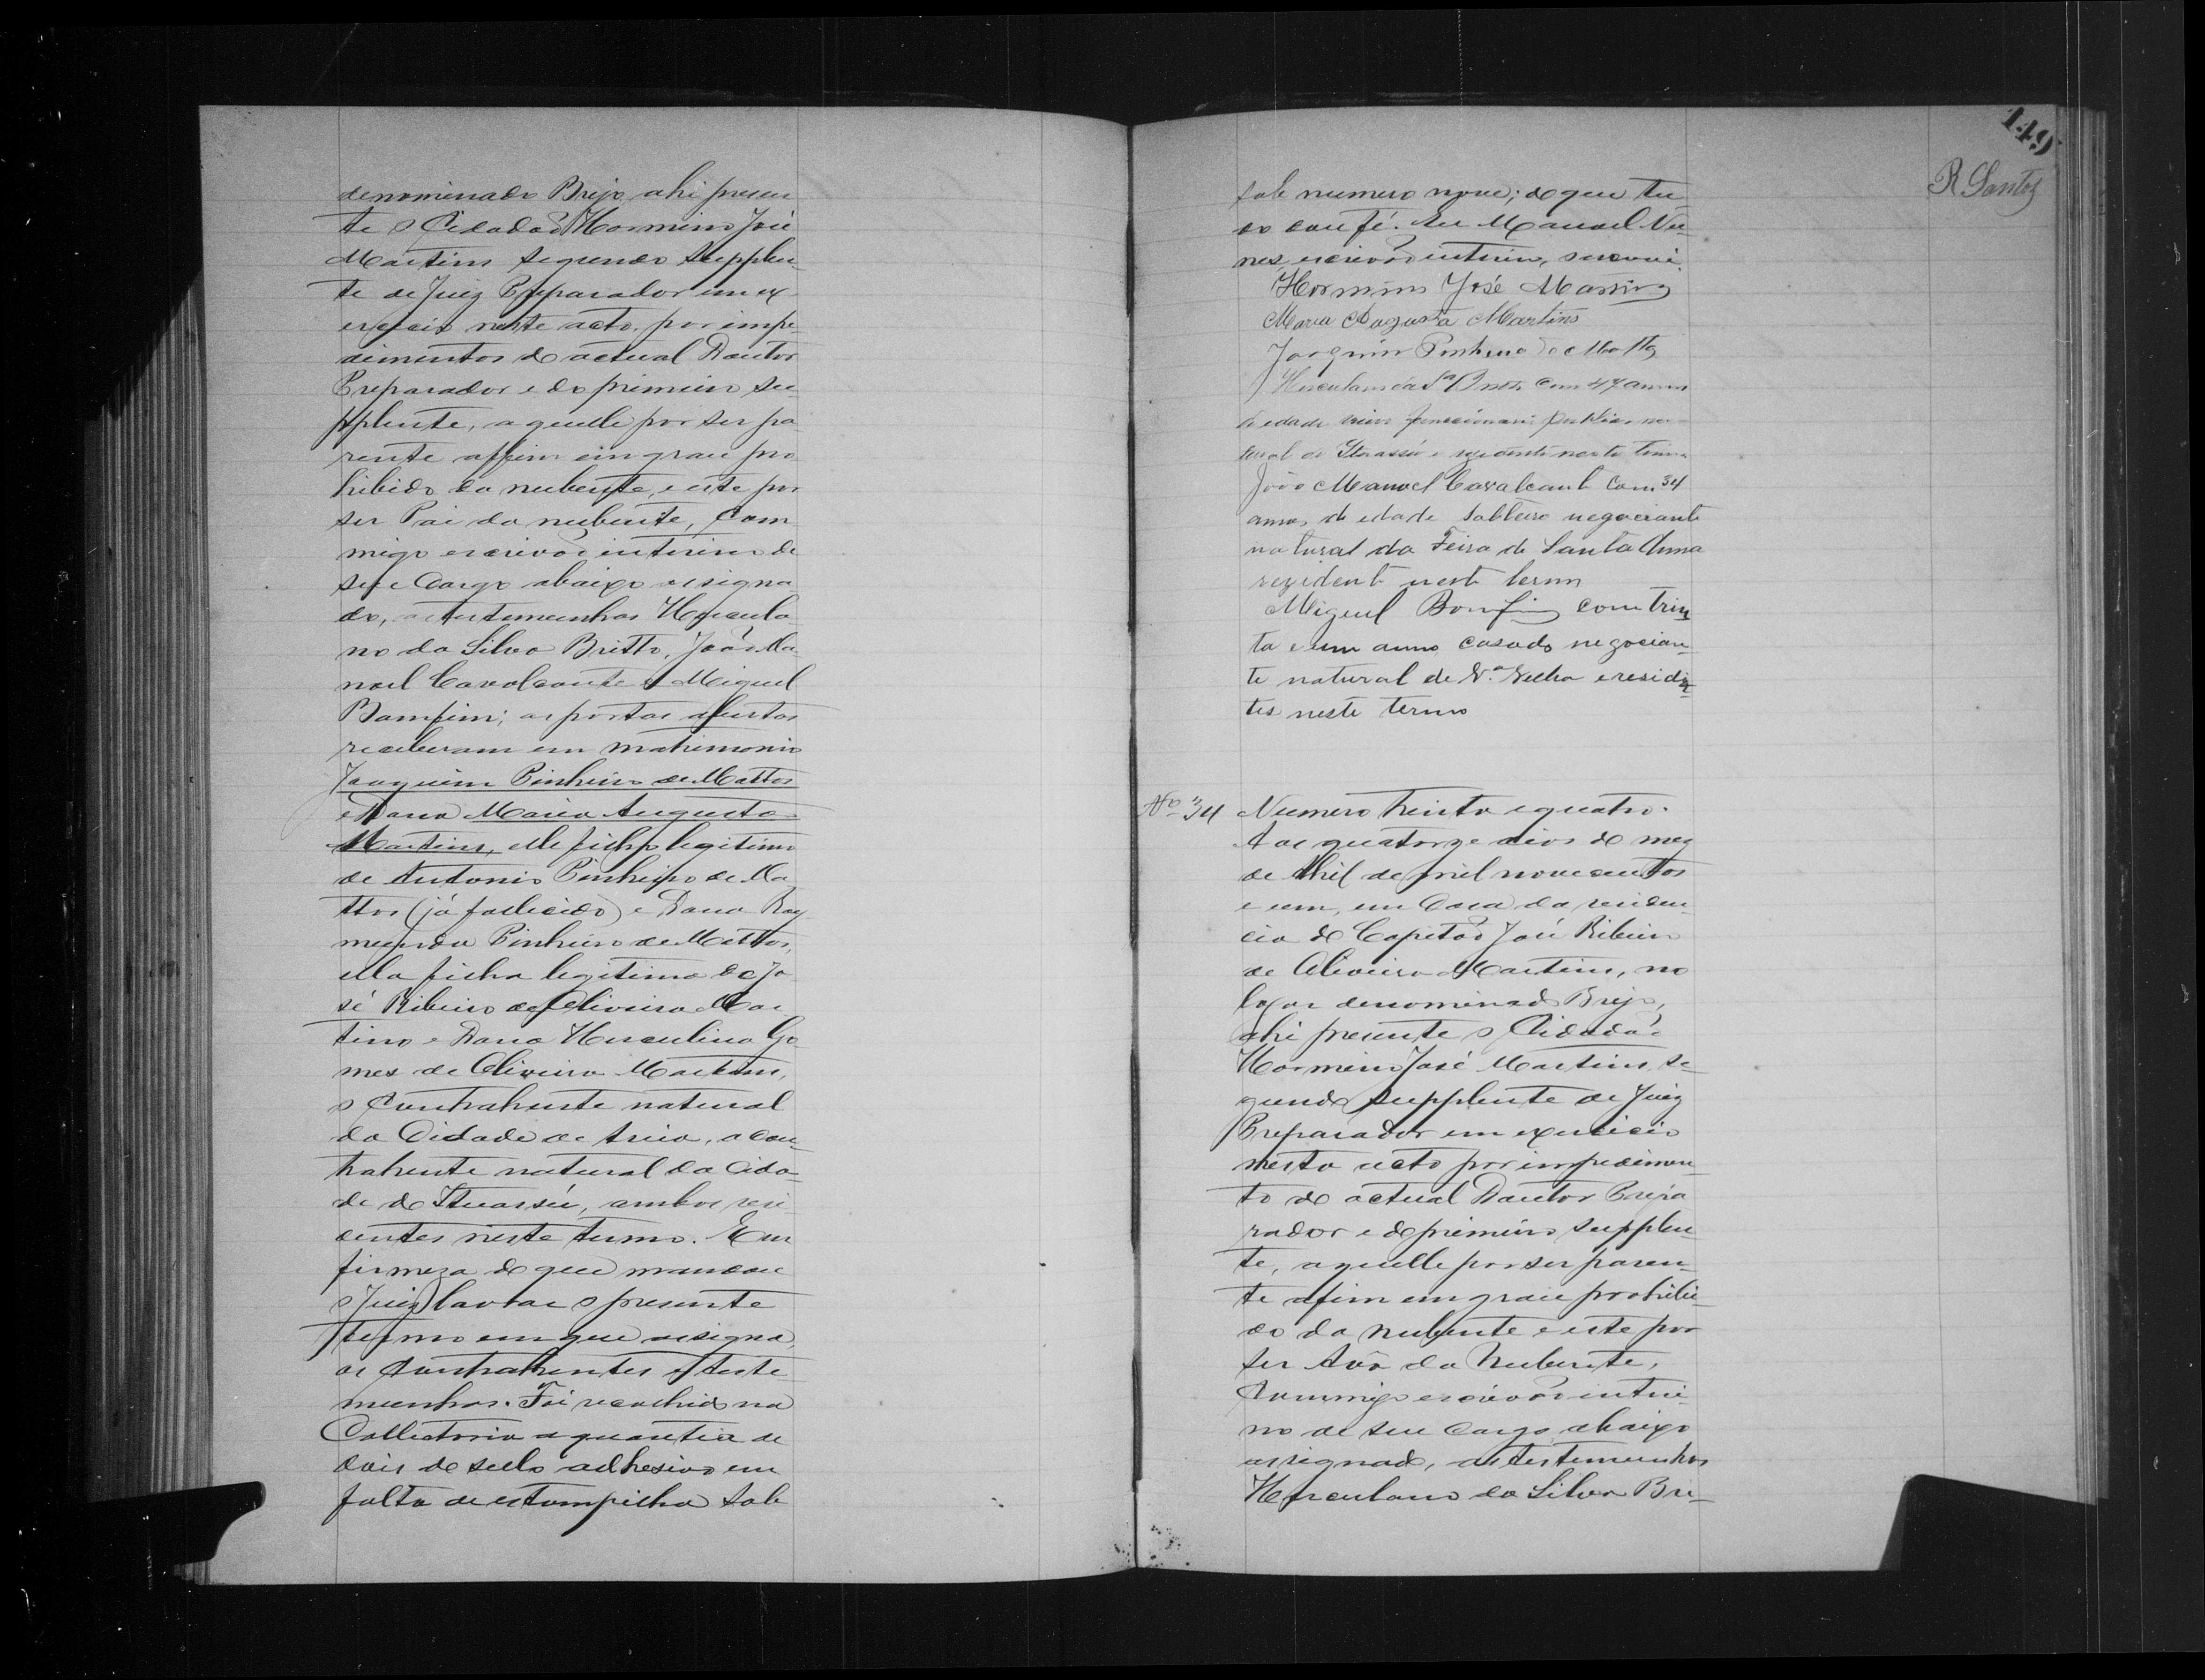 denominado Brejo, ahi presen
te o Cidadão Hormino José
Martins segundo Supplen-
te de Juiz Preparador em ex
ercicio neste acto, por impe-
dimentos do actual Doutor
Preparador e do primeiro su-
pplente, aquelle por ser pa-
rente affim em grau pro
hibido da nubente, e este por
ser Pai da nubente, Com
migo escrivão interino de
seu Cargo abaixo assigna
do, as testemunhas Hercula
no da Silva Britto, João Ma-
noel Cavalcante e Miguel
Bomfim; as portas abertas
receberam em matrimonio
Joaquim Pinheiro de Mattos
e Dona Maria Augusta
Martins, elle filho legitimo
de Antonio Pinheiro de Ma
ttos (já fallecido) e Dona Ray
munda Pinheiro de Mattos,
ella filha legitima de Jo
sé Ribeiro de Oliveira Mar
tins e Dona Herculina Go
mes de Oliveira Martins,
o Contrahente natural
da Cidade de Areia, a con
trahente natural da Cida-
de de Ituassú, ambos resi
dentes neste termo. Em
firmeza do que mandou
o Juiz lavrar o presente
termo em que assigna,
os Contrahentes e teste
munhas. Foi recolhido na
Collectoria a quantia de
dois de sello adhesivo em
falta de estampilha sob
149
R. Santos
sob numero nove; do que tu-
do dou fé. Eu Manoel Nu-
nes, escrivão interino, escrevi.
Hormino José Martins
Maria Augusta Martins
Joaquim Pinheiro de Mattos
Herculano da Sa. Britto com 47 annos
de edade funccionario publico na-
tural de Ituassú e rezidente neste termo
João Manoel Cavalcante com 34
annos de edade solteiro negociante
natural da Feira de Santa Anna
rezidente neste termo
Miguel Bomfim com trin
ta e um anno casado negocian-
te natural de Va. Velha e residen
tes neste termo
No 34 Numero trinta e quatro.
Aos quatorze dias do mez
de Abril de mil novecentos
e um, em Casa da residen-
cia do Capitão José Ribeiro
de Oliveira Martins, no
logar denominado Brejo,
ahi presente o Cidadão
Hormino José Martins, se-
gundo supplente de Juiz
Preparador em exercicio
nesto acto por impedimen-
to do actual Doutor Prepa
rador e do primeiro supplen
te, aquelle por ser paren-
te afim em grau prohibi-
do da nubente e este por
ser Avô da Nubente,
Commigo escrivão interi-
no de seu Cargo abaixo
assignado, as testemunhas
Herculano da Silva Bri-